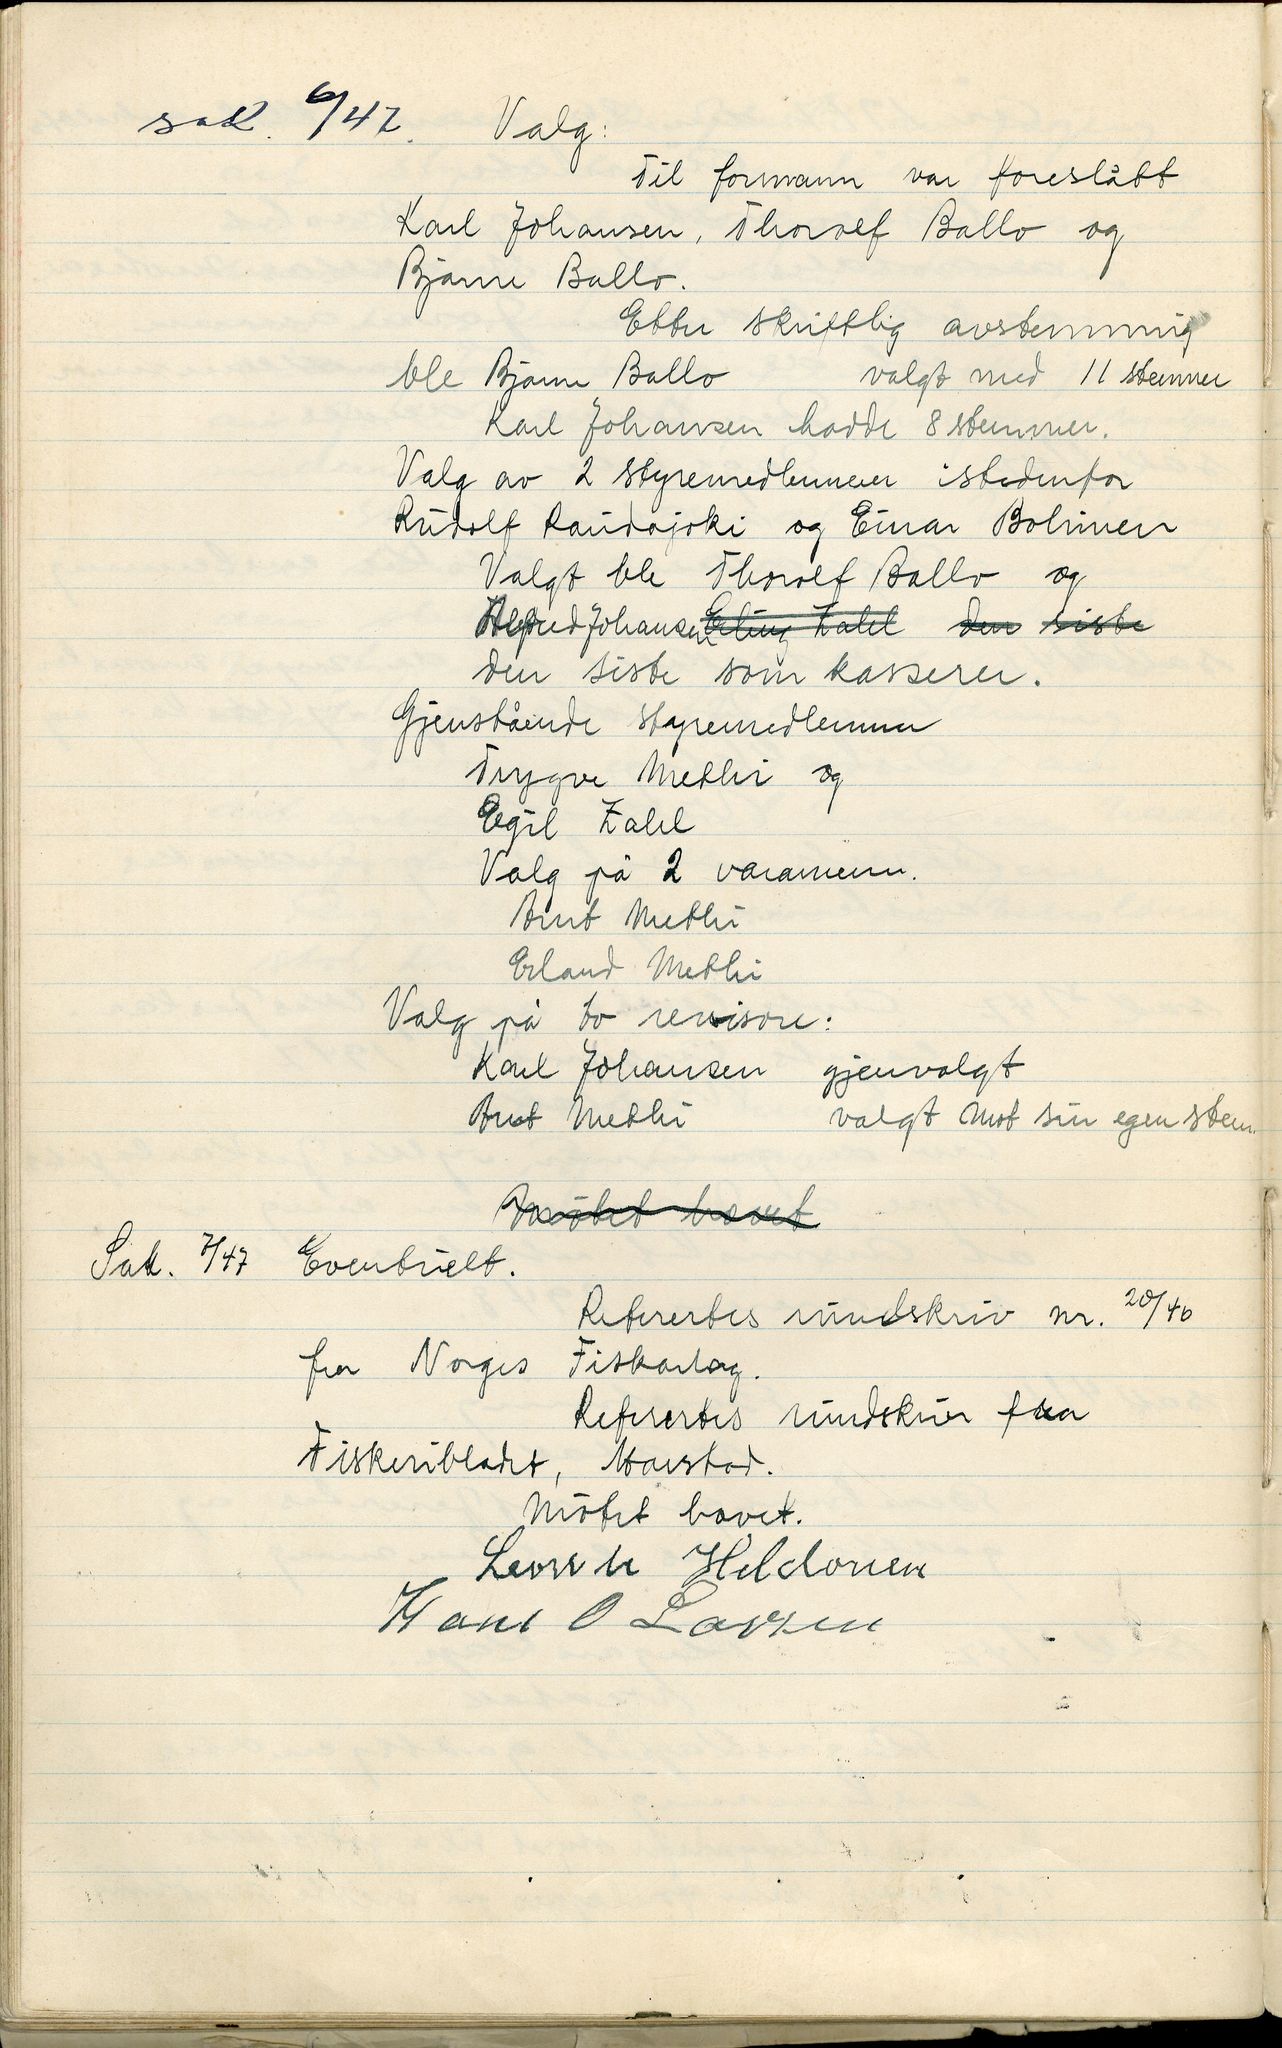 sak. 6/47. Valg:
Til formann var foreslått
Karl Johansen, Thorolf Ballo og
Bjarne Ballo.
Etter skriftlig avstemming
ble Bjarne Ballo valgt med 11 stemmer
Karl Johansen hadde 8 stemmer.
Valg av 2 styremedlemmer istedenfor
Rudolf Raudajoki og Einar Bolinen
Valgt ble Thorolf Ballo og
Alfred Johansen Erling Zahl den siste
den siste som kasserer.
Gjenstående styremedlemmer
Trygve Methi og
Egil Zahl
Valg på 2 varamenn.
Arnt Methi
Erland Methi
Valg på to revisore:
Karl Johansen gjenvalgt
Arnt Methi valgt mot sin egen stem.
Møtet hevet
Sak. 7/47 Eventuelt.
Refertes rundskriv nr. 20/46
fra Norges Fiskarlag.
Refertes rundskriv fra
Fiskeribladet, Harstad.
Møtet hevet.
Hildonen
Hans O Larsen